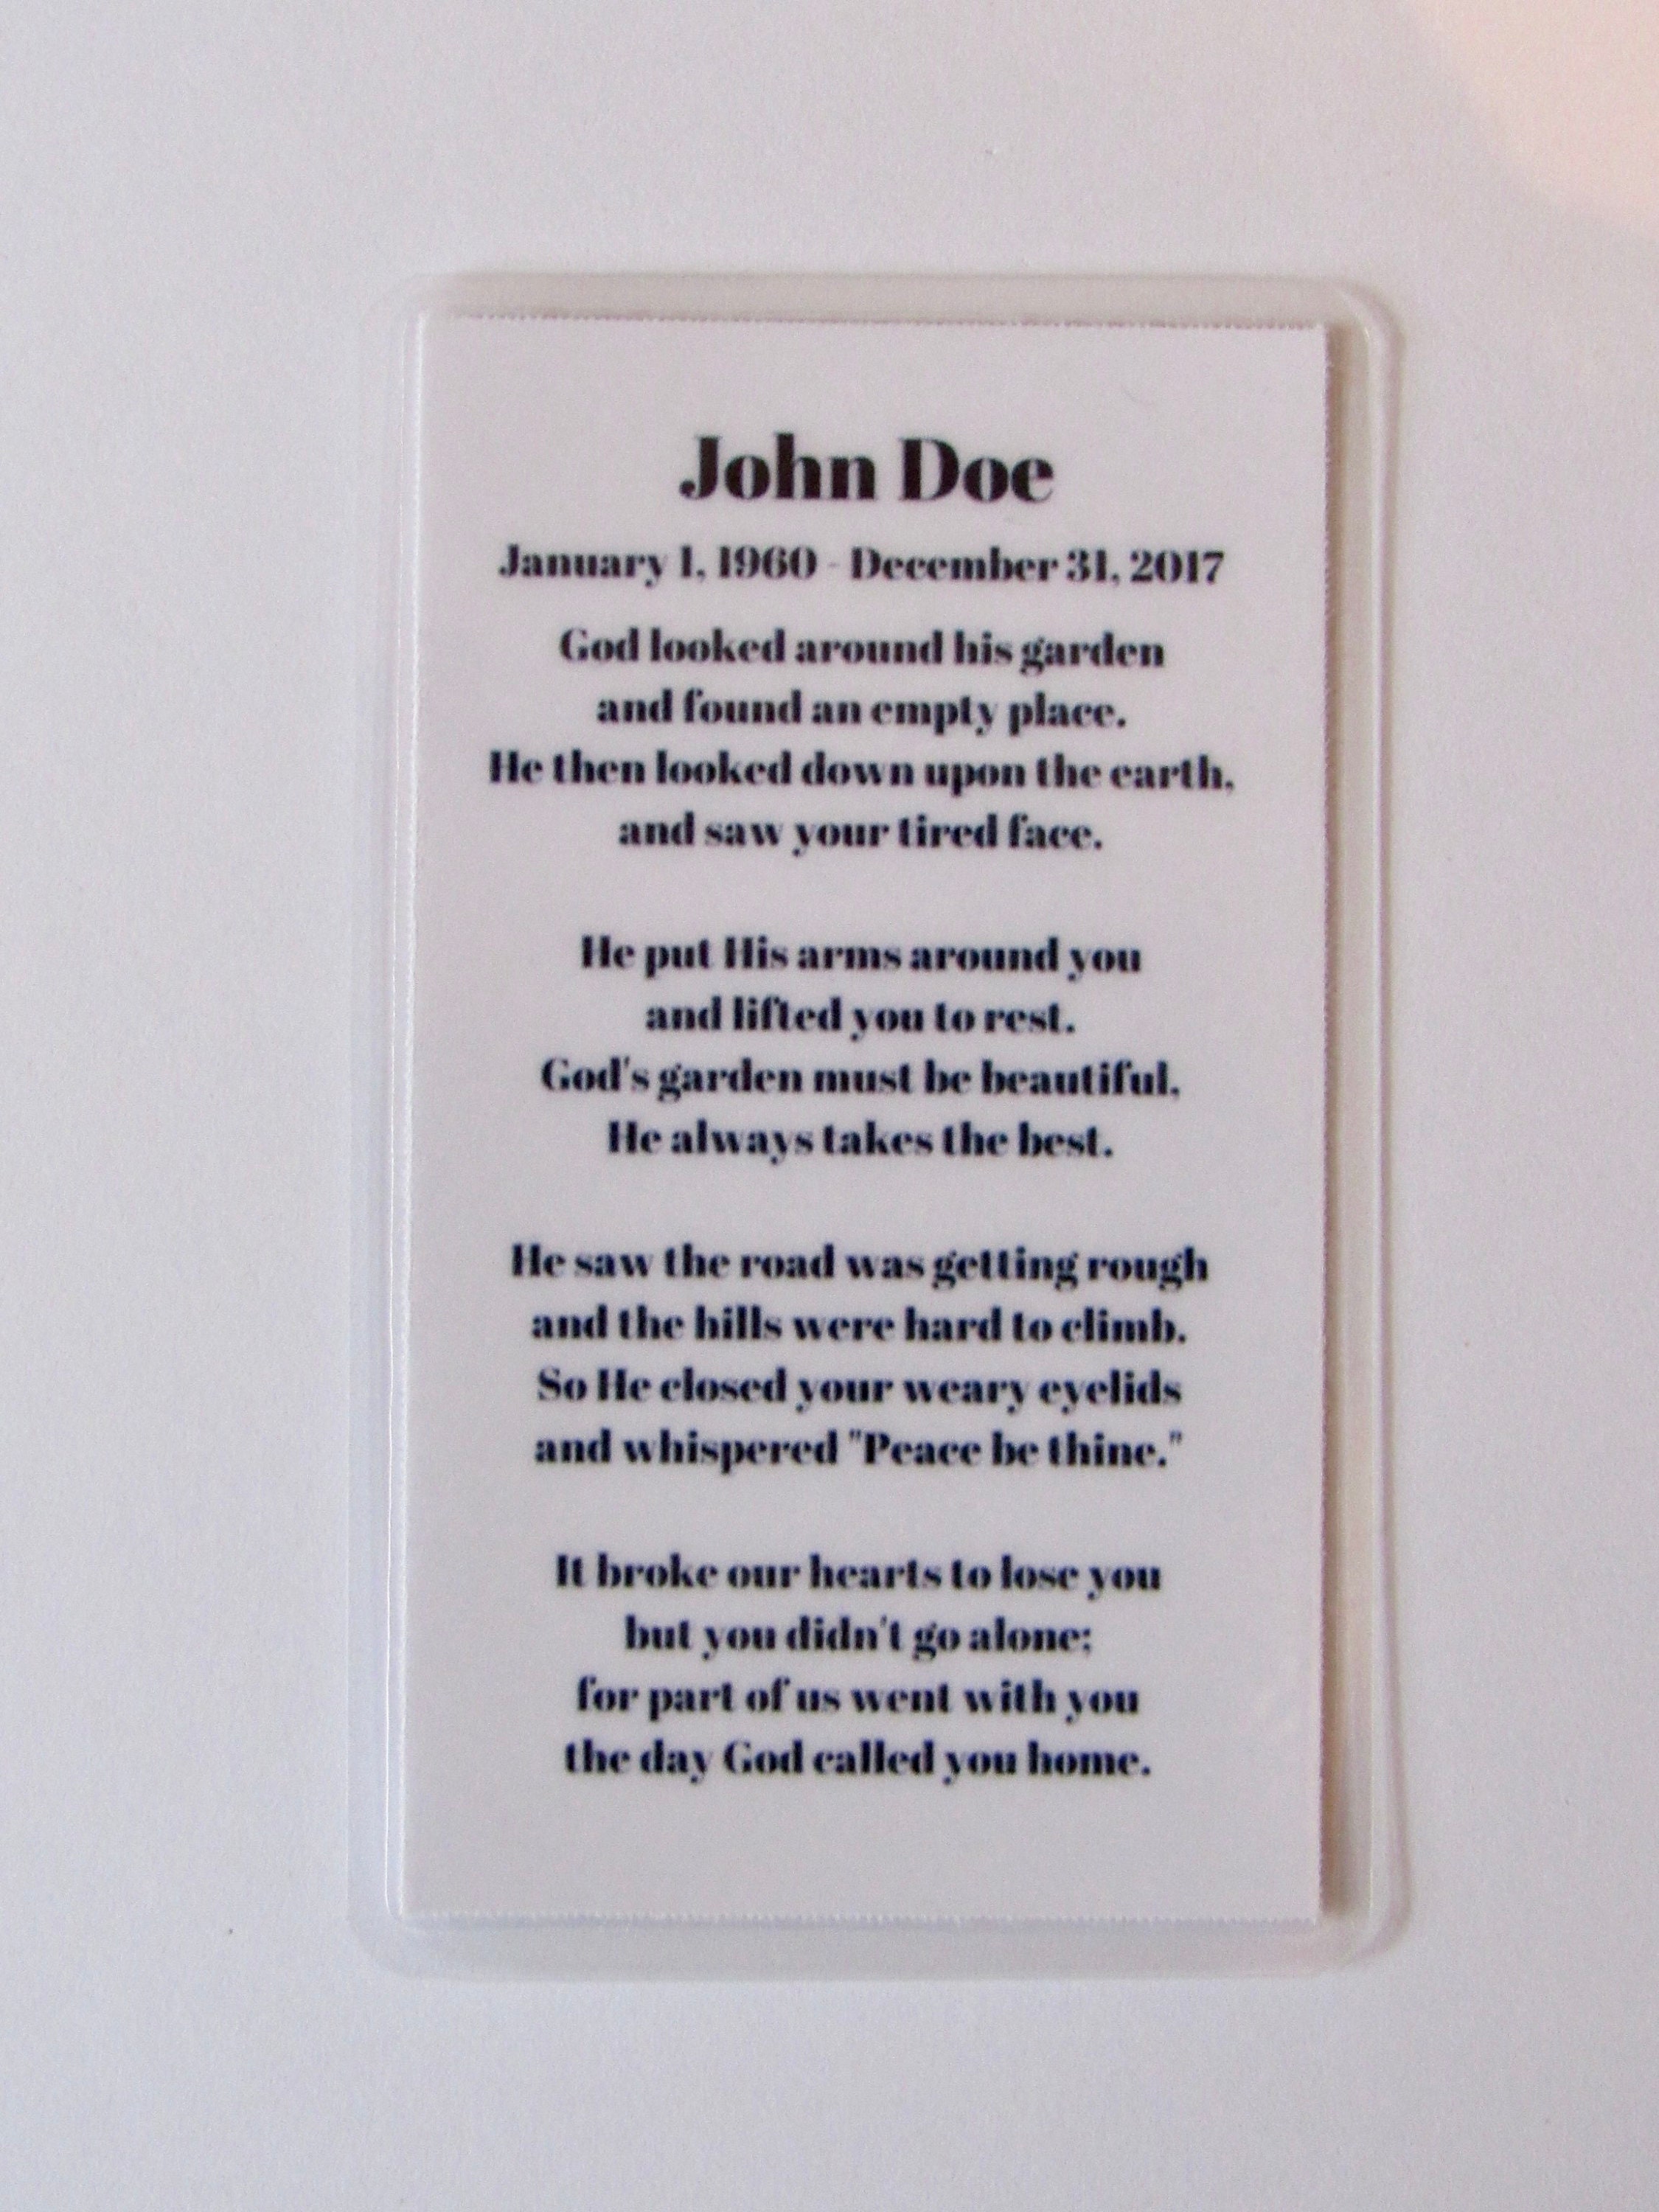 John Doe
January 1, 1960 - December 31, 2017
God looked around his garden
and found an empty place.
He then looked down upon the earth,
and saw your tired face.
He put His arms around you
and lifted you to rest.
God's garden must be beautiful,
He always takes the best.
He saw the road was getting rough
and the hills were hard to climb.
So He closed your weary eyelids
and whispered "Peace be thine."
It broke our hearts to lose you
but you didn't go alone;
for part of us went with you
the day God called you home.